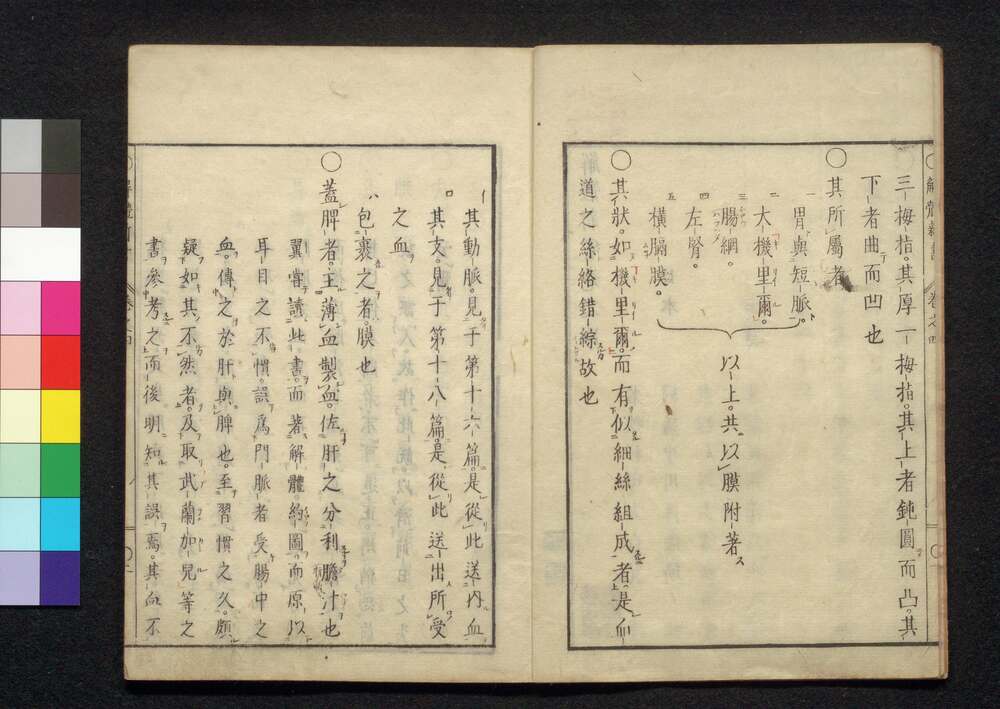 三梅指。其厚一梅指。其上者鈍圓而凸。其
下者曲而凹也
〇其所屬者
一 胃與短脈。
二 大機里爾。
三 腸網。
四 左腎。
五 橫膈膜。
以上。共以膜附著
〇其狀。如機里爾。而有似細絲組成者。是血
道之絲絡錯綜故也
イ 其動脈。見于第十六篇。是從此送內血
ロ 其支。見于第十八篇。是從此送出所受
之血
ハ 包裹之者。膜也
〇蓋脾者。主薄血製血。佐肝之分利膽汁也
翼嘗讀此書。而著解體約圖。而原以
耳目之不慣。誤為門脈者受腸中之
血。傳之於肝與脾也。至習慣之久。頗
疑如其不然者。及取武蘭加兒等之
書。參考之。而後明知其誤焉。其血不